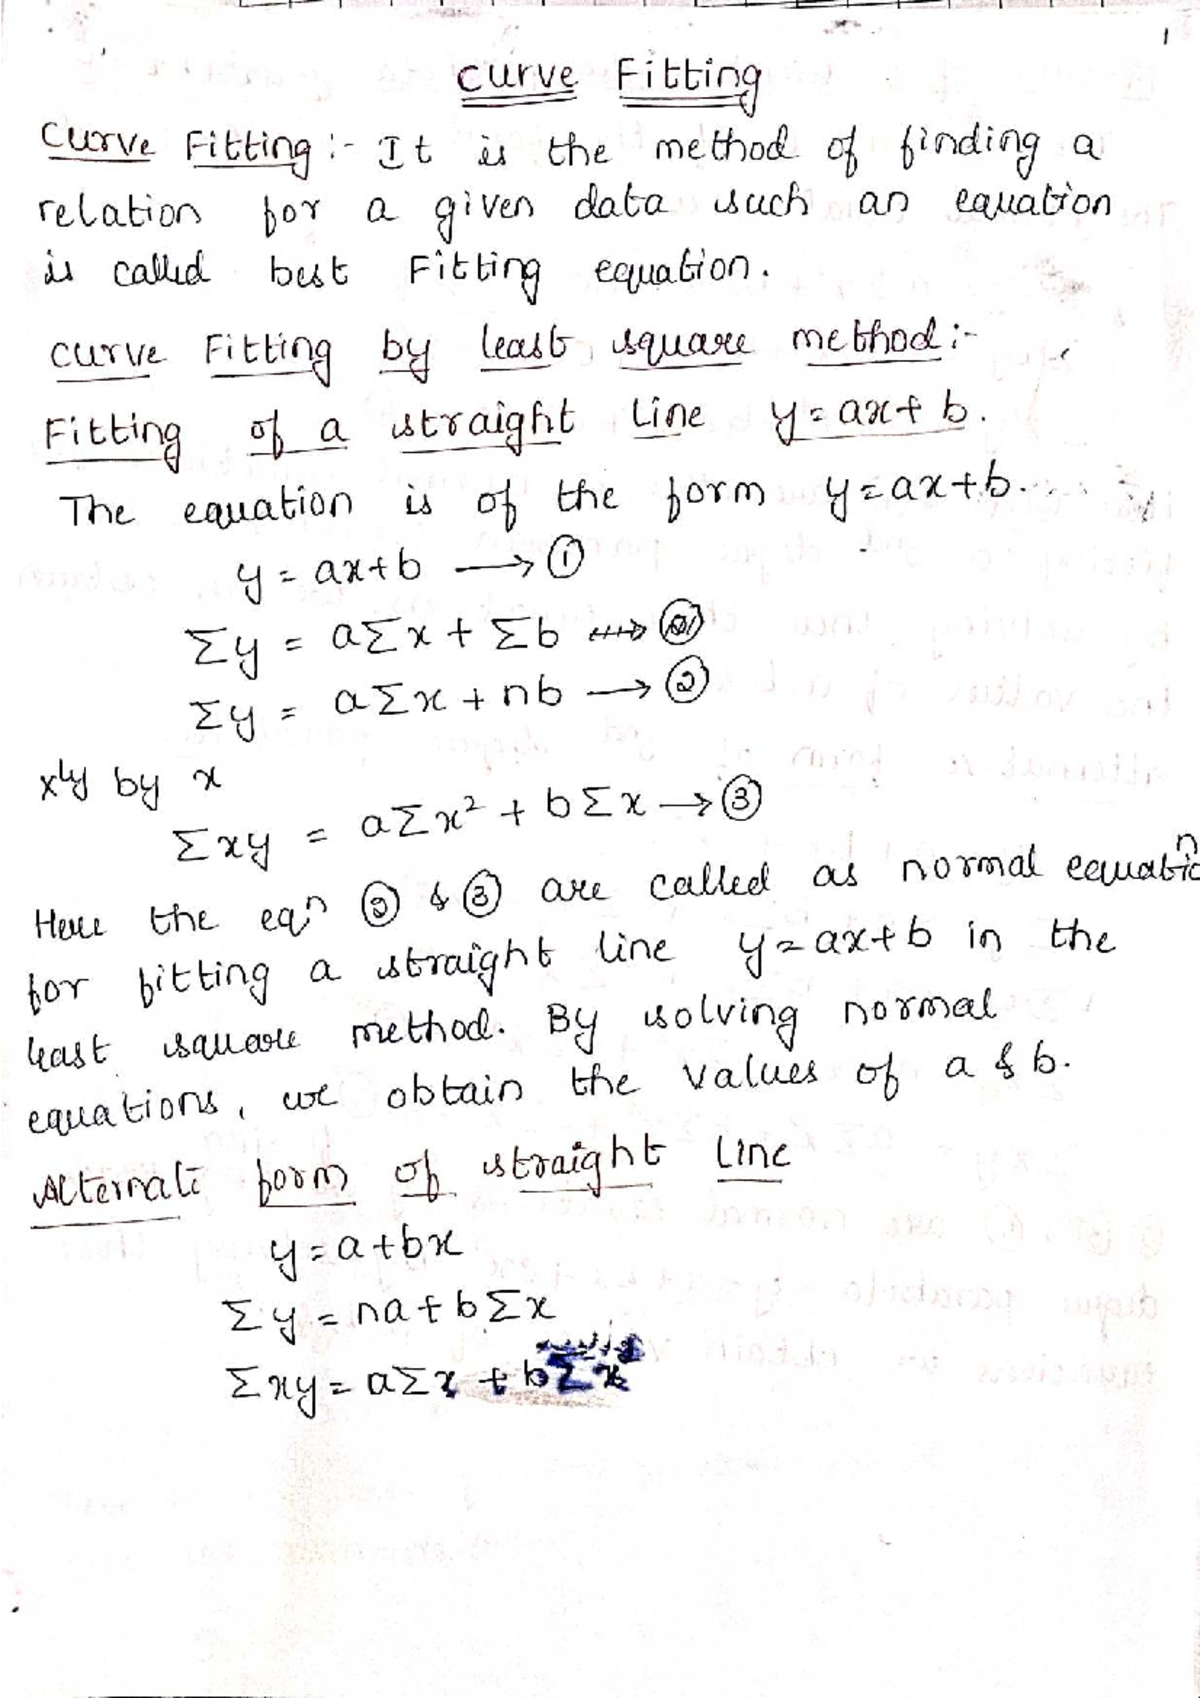 1
Curve Fitting
Curve Fitting :- It is the method of finding a
relation for a given data such an equation
is called best Fitting equation.
Curve Fitting by least square method :-
Fitting of a straight line y = ax + b.
The equation is of the form y = ax + b....
y = ax + b → ①
Σy = aΣx + Σb
Σy = aΣx + nb → ②
xly by x
Σxy = aΣx² + bΣx → ③
Here the eqⁿ ② & ③ are called as normal equatioⁿ
for fitting a straight line y = ax + b in the
least square method. By solving normal
equations, we obtain the values of a & b.
Alternate form of straight line
y = a + bx
Σy = na + bΣx
Σxy = aΣx + bΣx